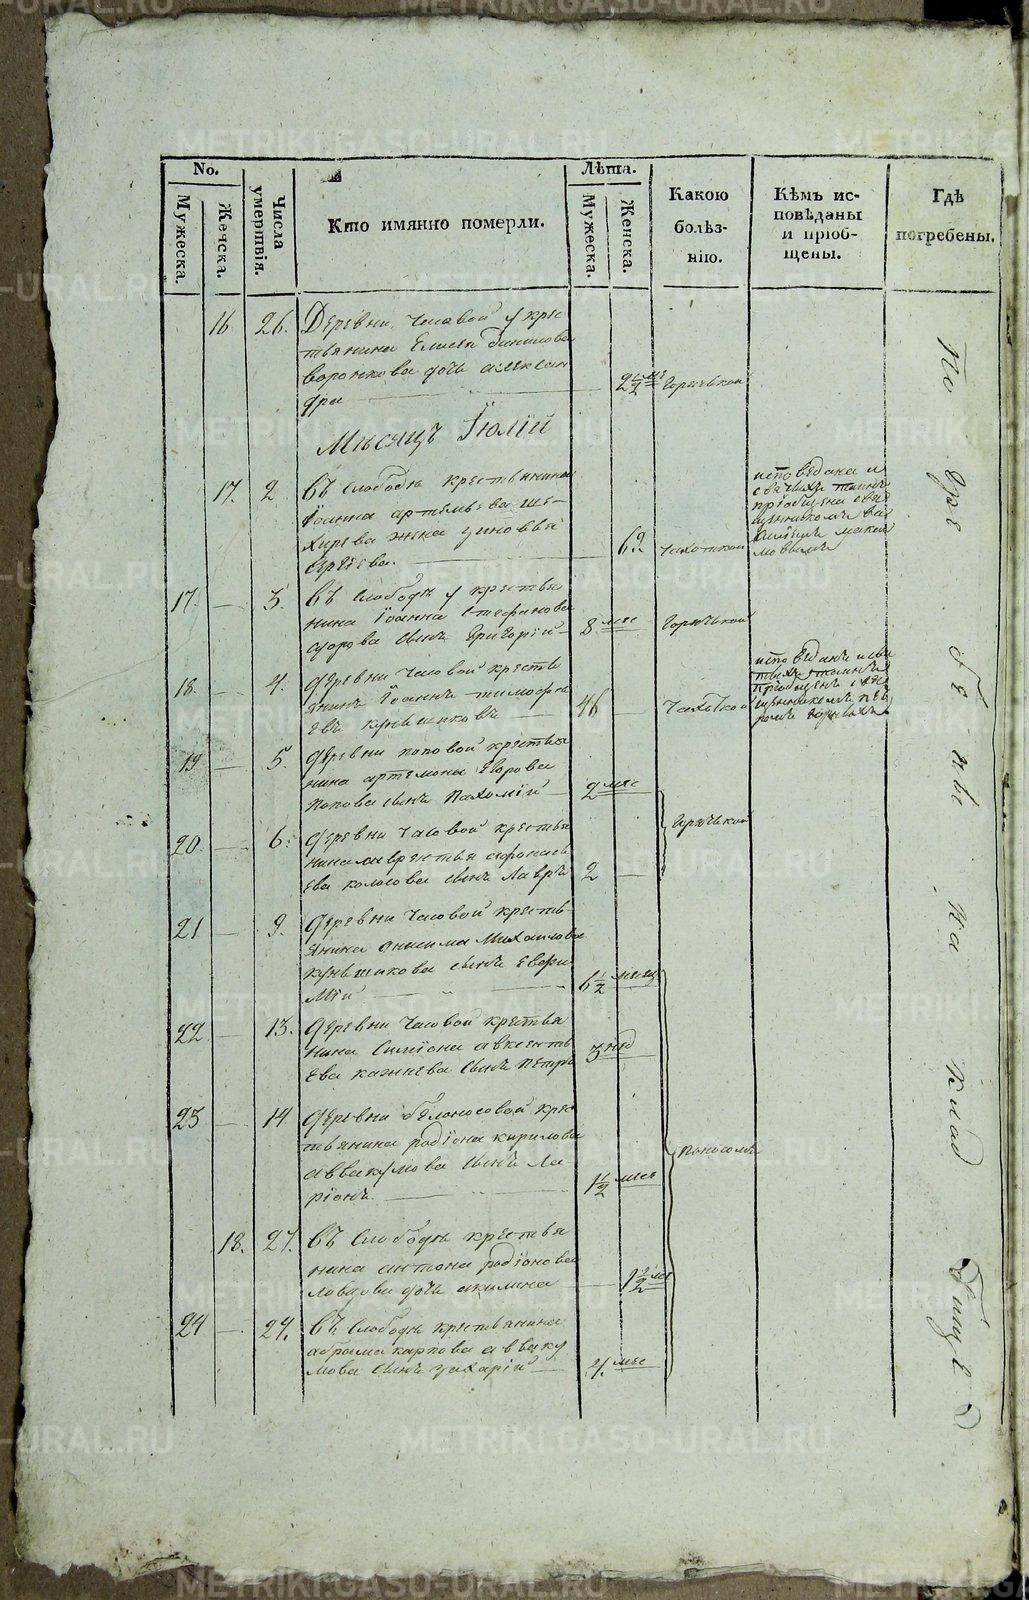 No.
Мужеска.
Женска.
Числа умертвія.
Кто имянно померли.
Лѣта.
Мужеска.
Женска.
Какою
болѣз-
нію.
Кѣмъ ис-
повѣданы
и пріоб-
щены.
Гдѣ
погребены.
16 26. Деревни Часовой у крес
тьянина Елисея Данилова
Воронкова дочь Алексан
дра 2½ мѣ Горячькой
Мѣсяцъ Іюлій
17. 2 Въ Слободѣ крестьянина
Іоанна Артемьева Ше-
хирева жена Зиновья
Сергѣева. 69. Чахоткой
исповѣдана и
святыхъ таинъ
пріобщена свя
щенникомъ Ва
силіемъ
17. — 3. Въ Слободѣ у крестья
нина Іоанна Стефанова
сынъ Григорій 8 мѣс Горячькой
18. — 4. Деревни Часовой кресть
янинъ Іоаннъ Тимофѣ
евъ 46 Чахоткой
исповѣданъ и свя
тыхъ таинъ
пріобщенъ свя
щенникомъ Пет
ромъ
19 — 5. Деревни Поповой крестья
нина Артемона Егорова
Попова сынъ Пахомій 2 мѣс
Горячькой
20. — 6. Деревни Часовой крестья
нина Лаврентья Афонась
ева Колосова сынъ Лавръ 2 —
21 — 9. Деревни Часовой кресть
янина Онисима Михаилова
сынъ Евфи
мій 6½ мѣсяц
22 — 13. Деревни Часовой крестья
нина Симіона Авксенть
ева сынъ Петръ 3 нед
23 — 14 Деревни Бѣлоносовой крес
тьянина Родіона Кирилова
Аввакумова сынъ Ла
ріонъ. 1½ мѣся
Поносомъ
18. 27. Въ Слободѣ крестья
нина Антона Родіонова
Ловцова дочь Акилина 1½ мѣс
24 — 27. Въ Слободѣ крестьянина
Абрама Карпова Авваку
мова сынъ Захарій 4. мѣс
По
гре
бе
ны
на
клад
бищѣ